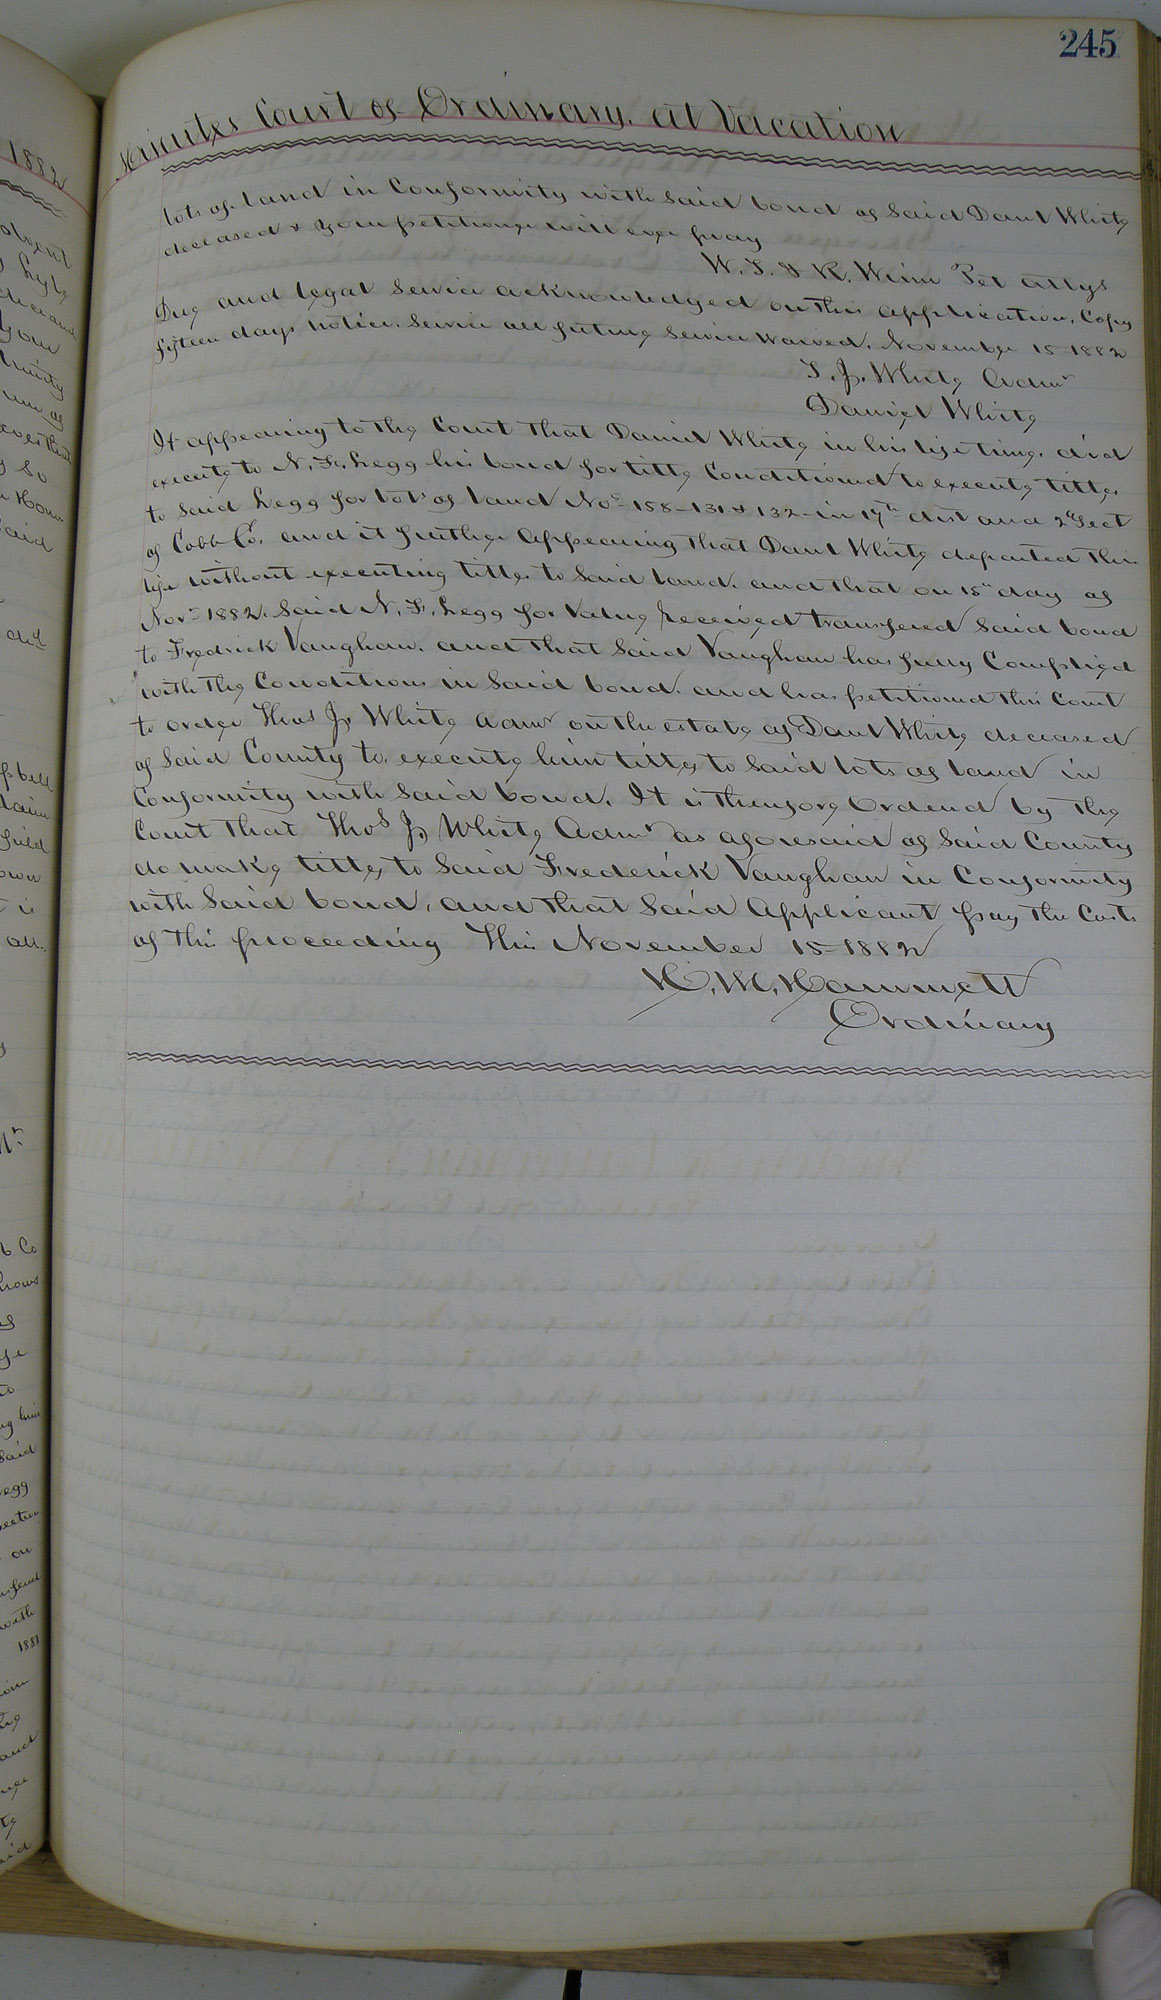 245
Minutes Court of Ordinary. at Vacation
lots of land in Conformity with said bond of said Danl White
deceased & your petitioner will ever pray
W. T. & R. Winn Pet attys
Due and legal Service acknowledged on this application, Copy
fifteen days notice. Service all future Service waived. November 15 1882
T. J. White Admr
Daniel White
It appearing to the Court that Daniel White in his life time, did
execute to N. F. Legg his bond for title Conditioned to execute title
to said Legg for lots of land Nos 158-131 & 132- in 19th dist and 2d Sect
of Cobb Co. and it further appearing that Danl White departed this
life without executing title to said land. and that on 15th day of
Novr 1882. said N. F. Legg for Value received transfered said bond
to Fredrick Vaughan. and that said Vaughan has fully Complied
with the Conditions in said bond. and has petitioned this Court
to order Thos J. White Admr on the estate of Danl White deceased
of said County to execute him title to said lots of land in
Conformity with said bond. It is therefore Ordered by the
Court that Thos J. White Admr as aforesaid of said County
do make title to said Frederick Vaughan in Conformity
with said bond, and that said Applicant pay the Costs
of this proceeding This November 15-1882
H. M. Hammett
Ordinary
1882